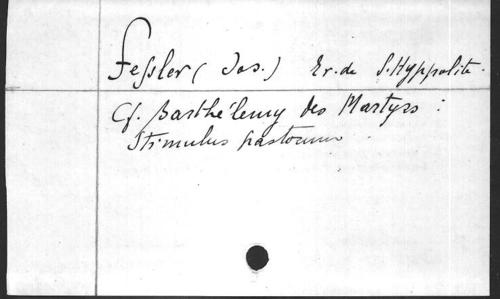 Fessler (Jos.) Ev. de S. Hyppolite.
Cf. Barthélemy des Martyrs :
Stimulus pastorum.